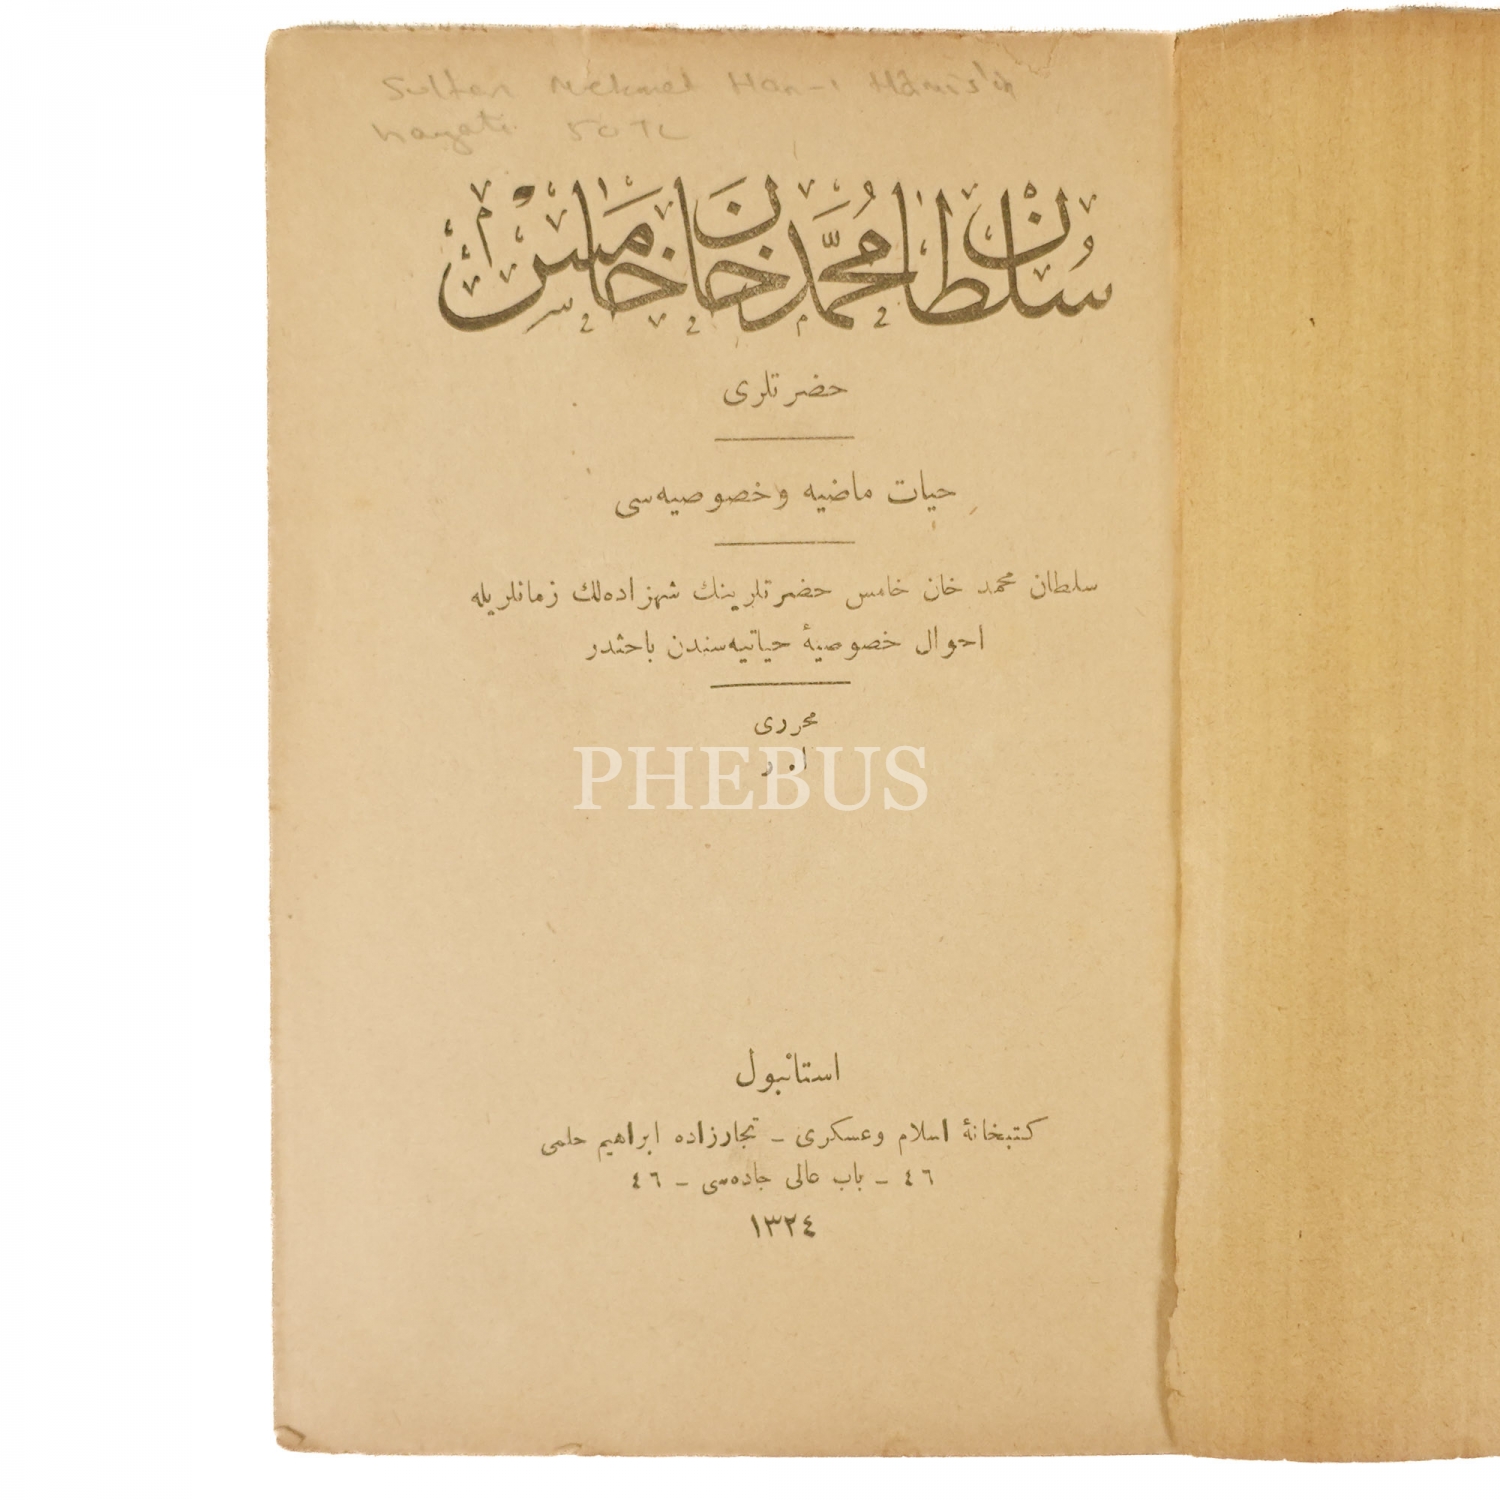 Sultan Mehmet Han-ı Hâmis'in
hayatı 50 TL
سلطان محمد خان خامس
حضرتلری
حیات ماضیه و خصوصیه‌سی
سلطان محمد خان خامس حضرتلرینك شهزاده‌لك زمانلریله
احوال خصوصیهٔ حیاتیه‌سندن باحثدر
محرری
ا . ر
PHEBUS
استانبول
كتبخانهٔ اسلام و عسكری – تجارزاده ابراهیم حلمی
٤٦ – باب عالی جاده‌سی – ٤٦
١٣٢٤